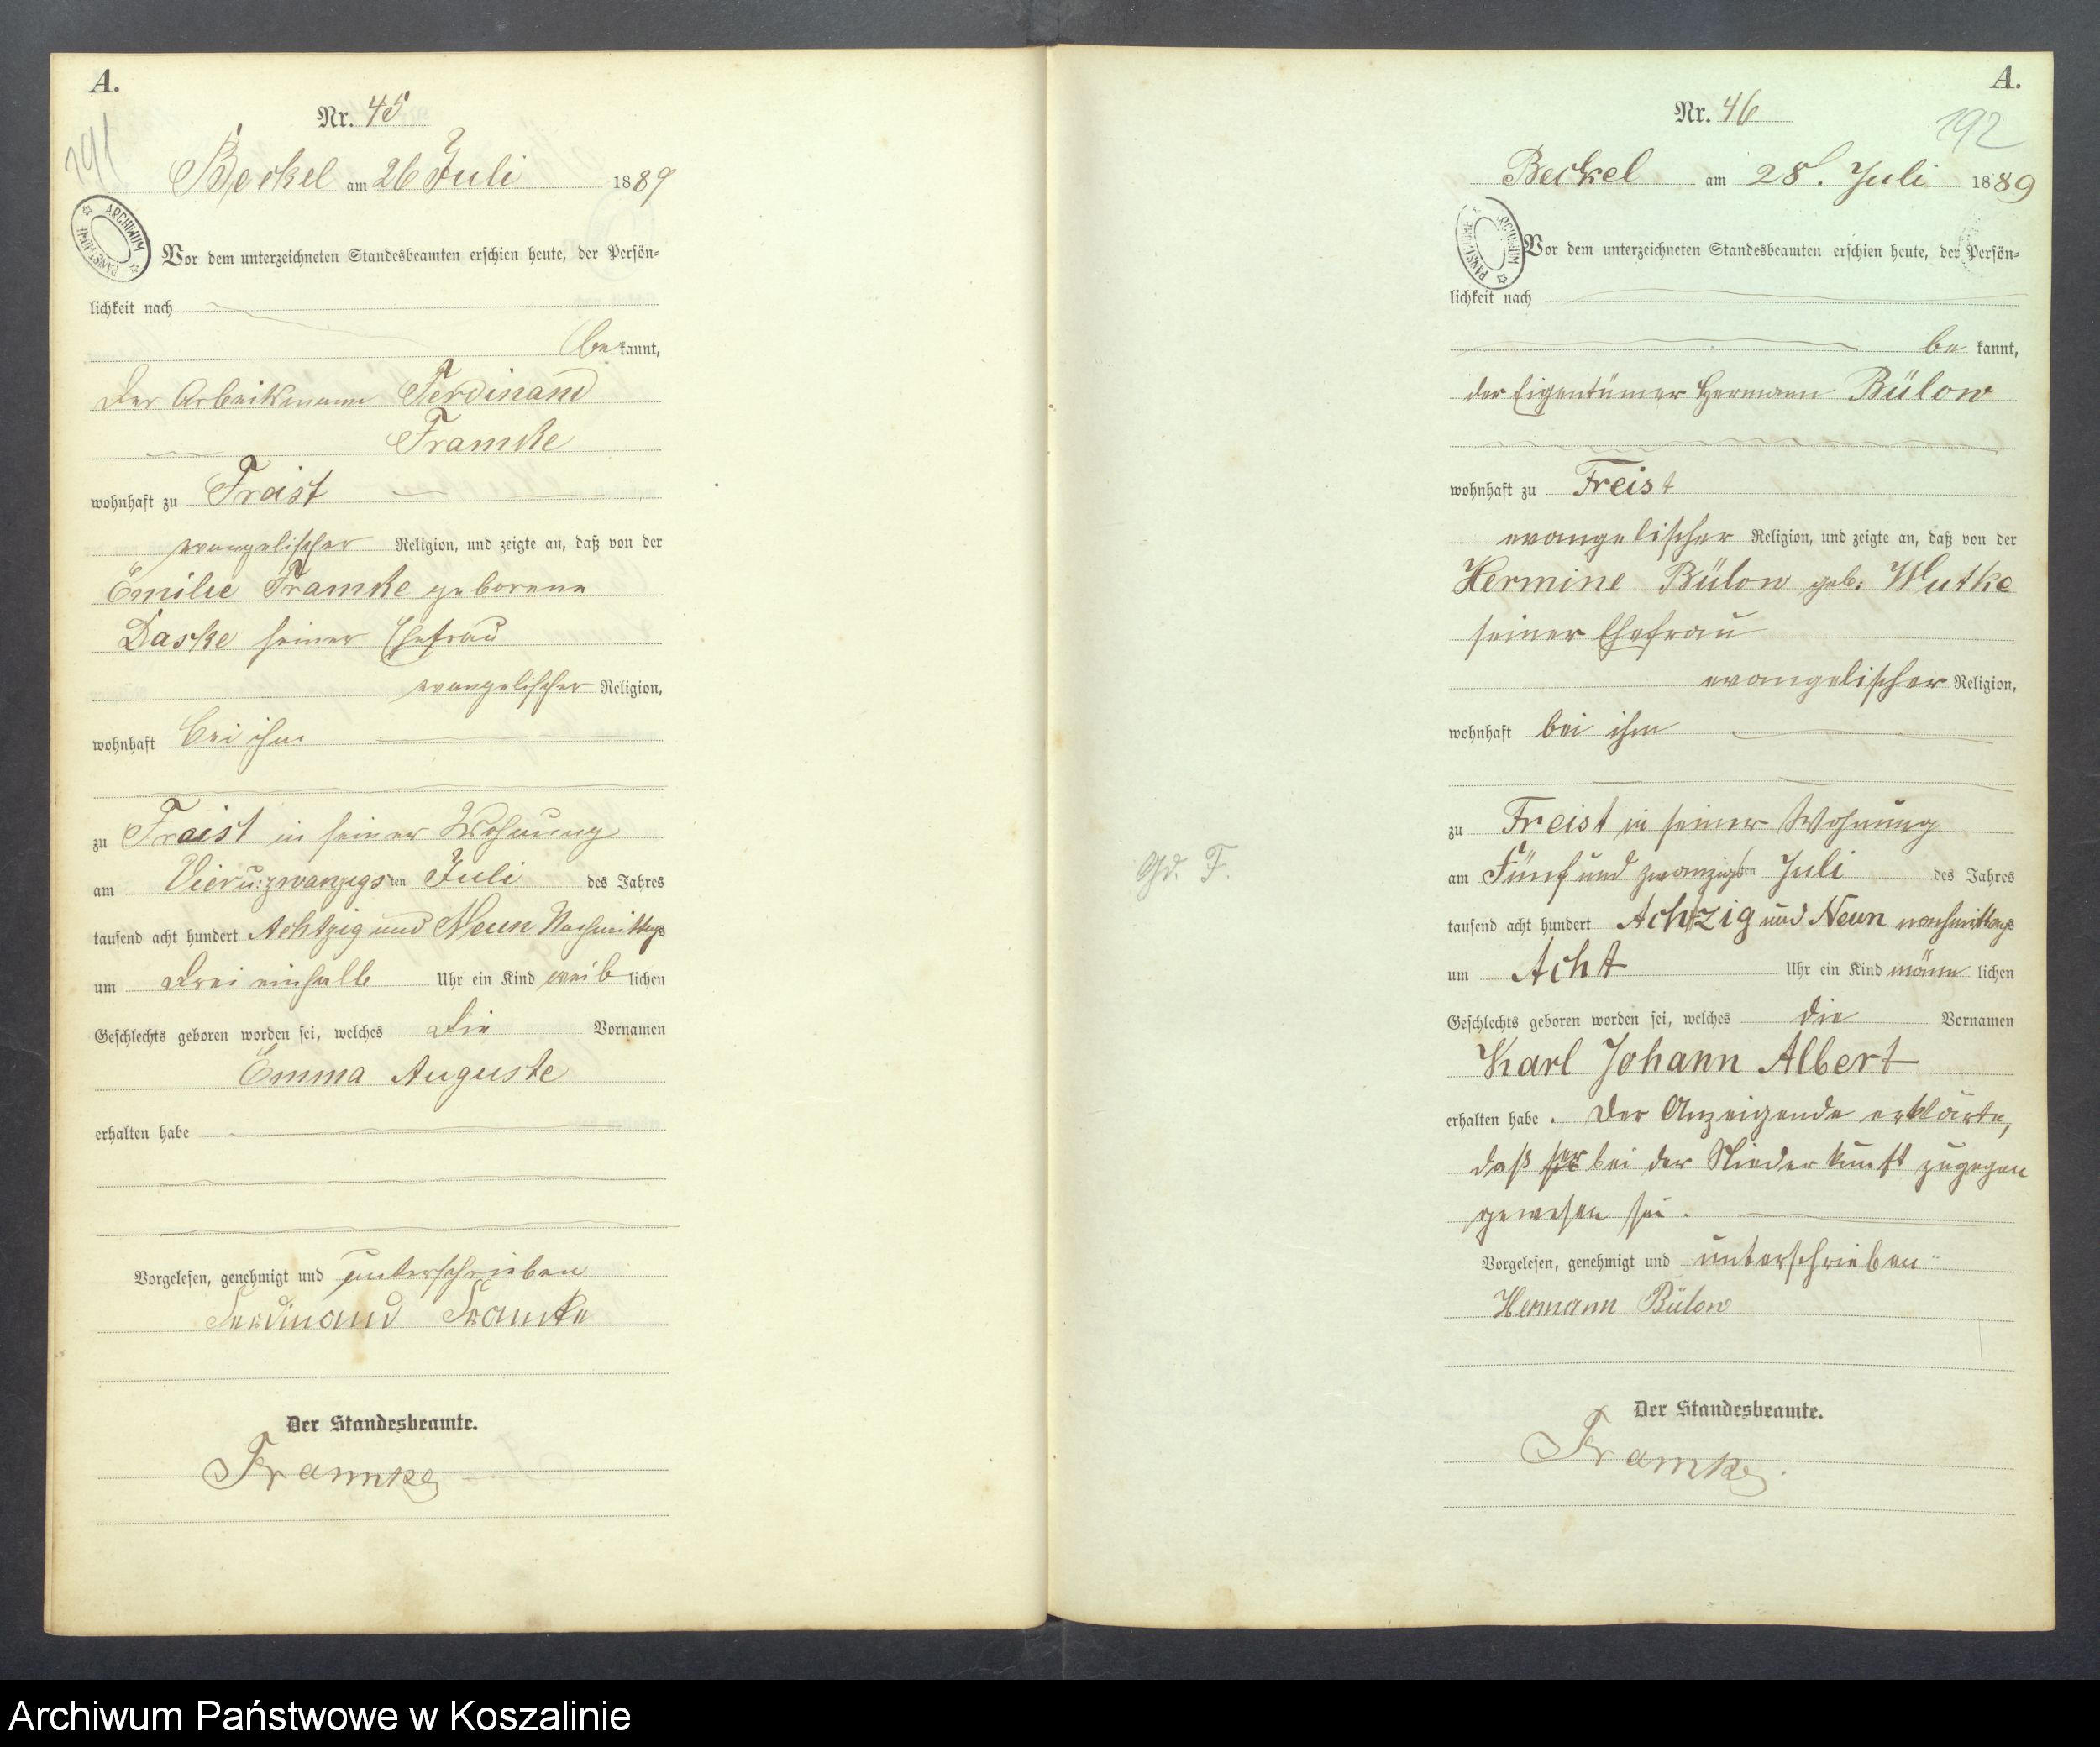 A.
Nr. 45
191
Beckel am 26 Juli 1889
ARCHIWUM PAŃSTWOWE
Vor dem unterzeichneten Standesbeamten erschien heute, der Persön-
lichkeit nach
bekannt,
der Arbeitsmann Ferdinand
Framke
wohnhaft zu Freist
evangelischer Religion, und zeigte an, daß von der
Emilie Framke geborene
Daske seiner Ehefrau
evangelischer Religion,
wohnhaft bei ihm
zu Freist in seiner Wohnung
am Vieru:zwanzigsten Juli des Jahres
tausend acht hundert Achtzig und Neun Nachmittags
um drei einhalb Uhr ein Kind weiblichen
Geschlechts geboren worden sei, welches die Vornamen
Emma Auguste
erhalten habe
Vorgelesen, genehmigt und unterschrieben
Ferdinand Framke
Der Standesbeamte.
Framke
A.
Nr. 46
192
Beckel am 28. Juli 1889
ARCHIWUM PAŃSTWOWE
Vor dem unterzeichneten Standesbeamten erschien heute, der Persön-
lichkeit nach
bekannt,
der Eigentümer Hermann Bülow
wohnhaft zu Freist
evangelischer Religion, und zeigte an, daß von der
Hermine Bülow geb: Wutke
seiner Ehefrau
evangelischer Religion,
wohnhaft bei ihm
zu Freist in seiner Wohnung
am Fünf und zwanzigsten Juli des Jahres
tausend acht hundert Achtzig und Neun nachmittags
um Acht Uhr ein Kind männlichen
Geschlechts geboren worden sei, welches die Vornamen
Karl Johann Albert
erhalten habe. Der Anzeigende erklärte,
daß er bei der Niederkunft zugegen
gewesen sei.
Vorgelesen, genehmigt und unterschrieben
Hermann Bülow
Der Standesbeamte.
Framke
Archiwum Państwowe w Koszalinie